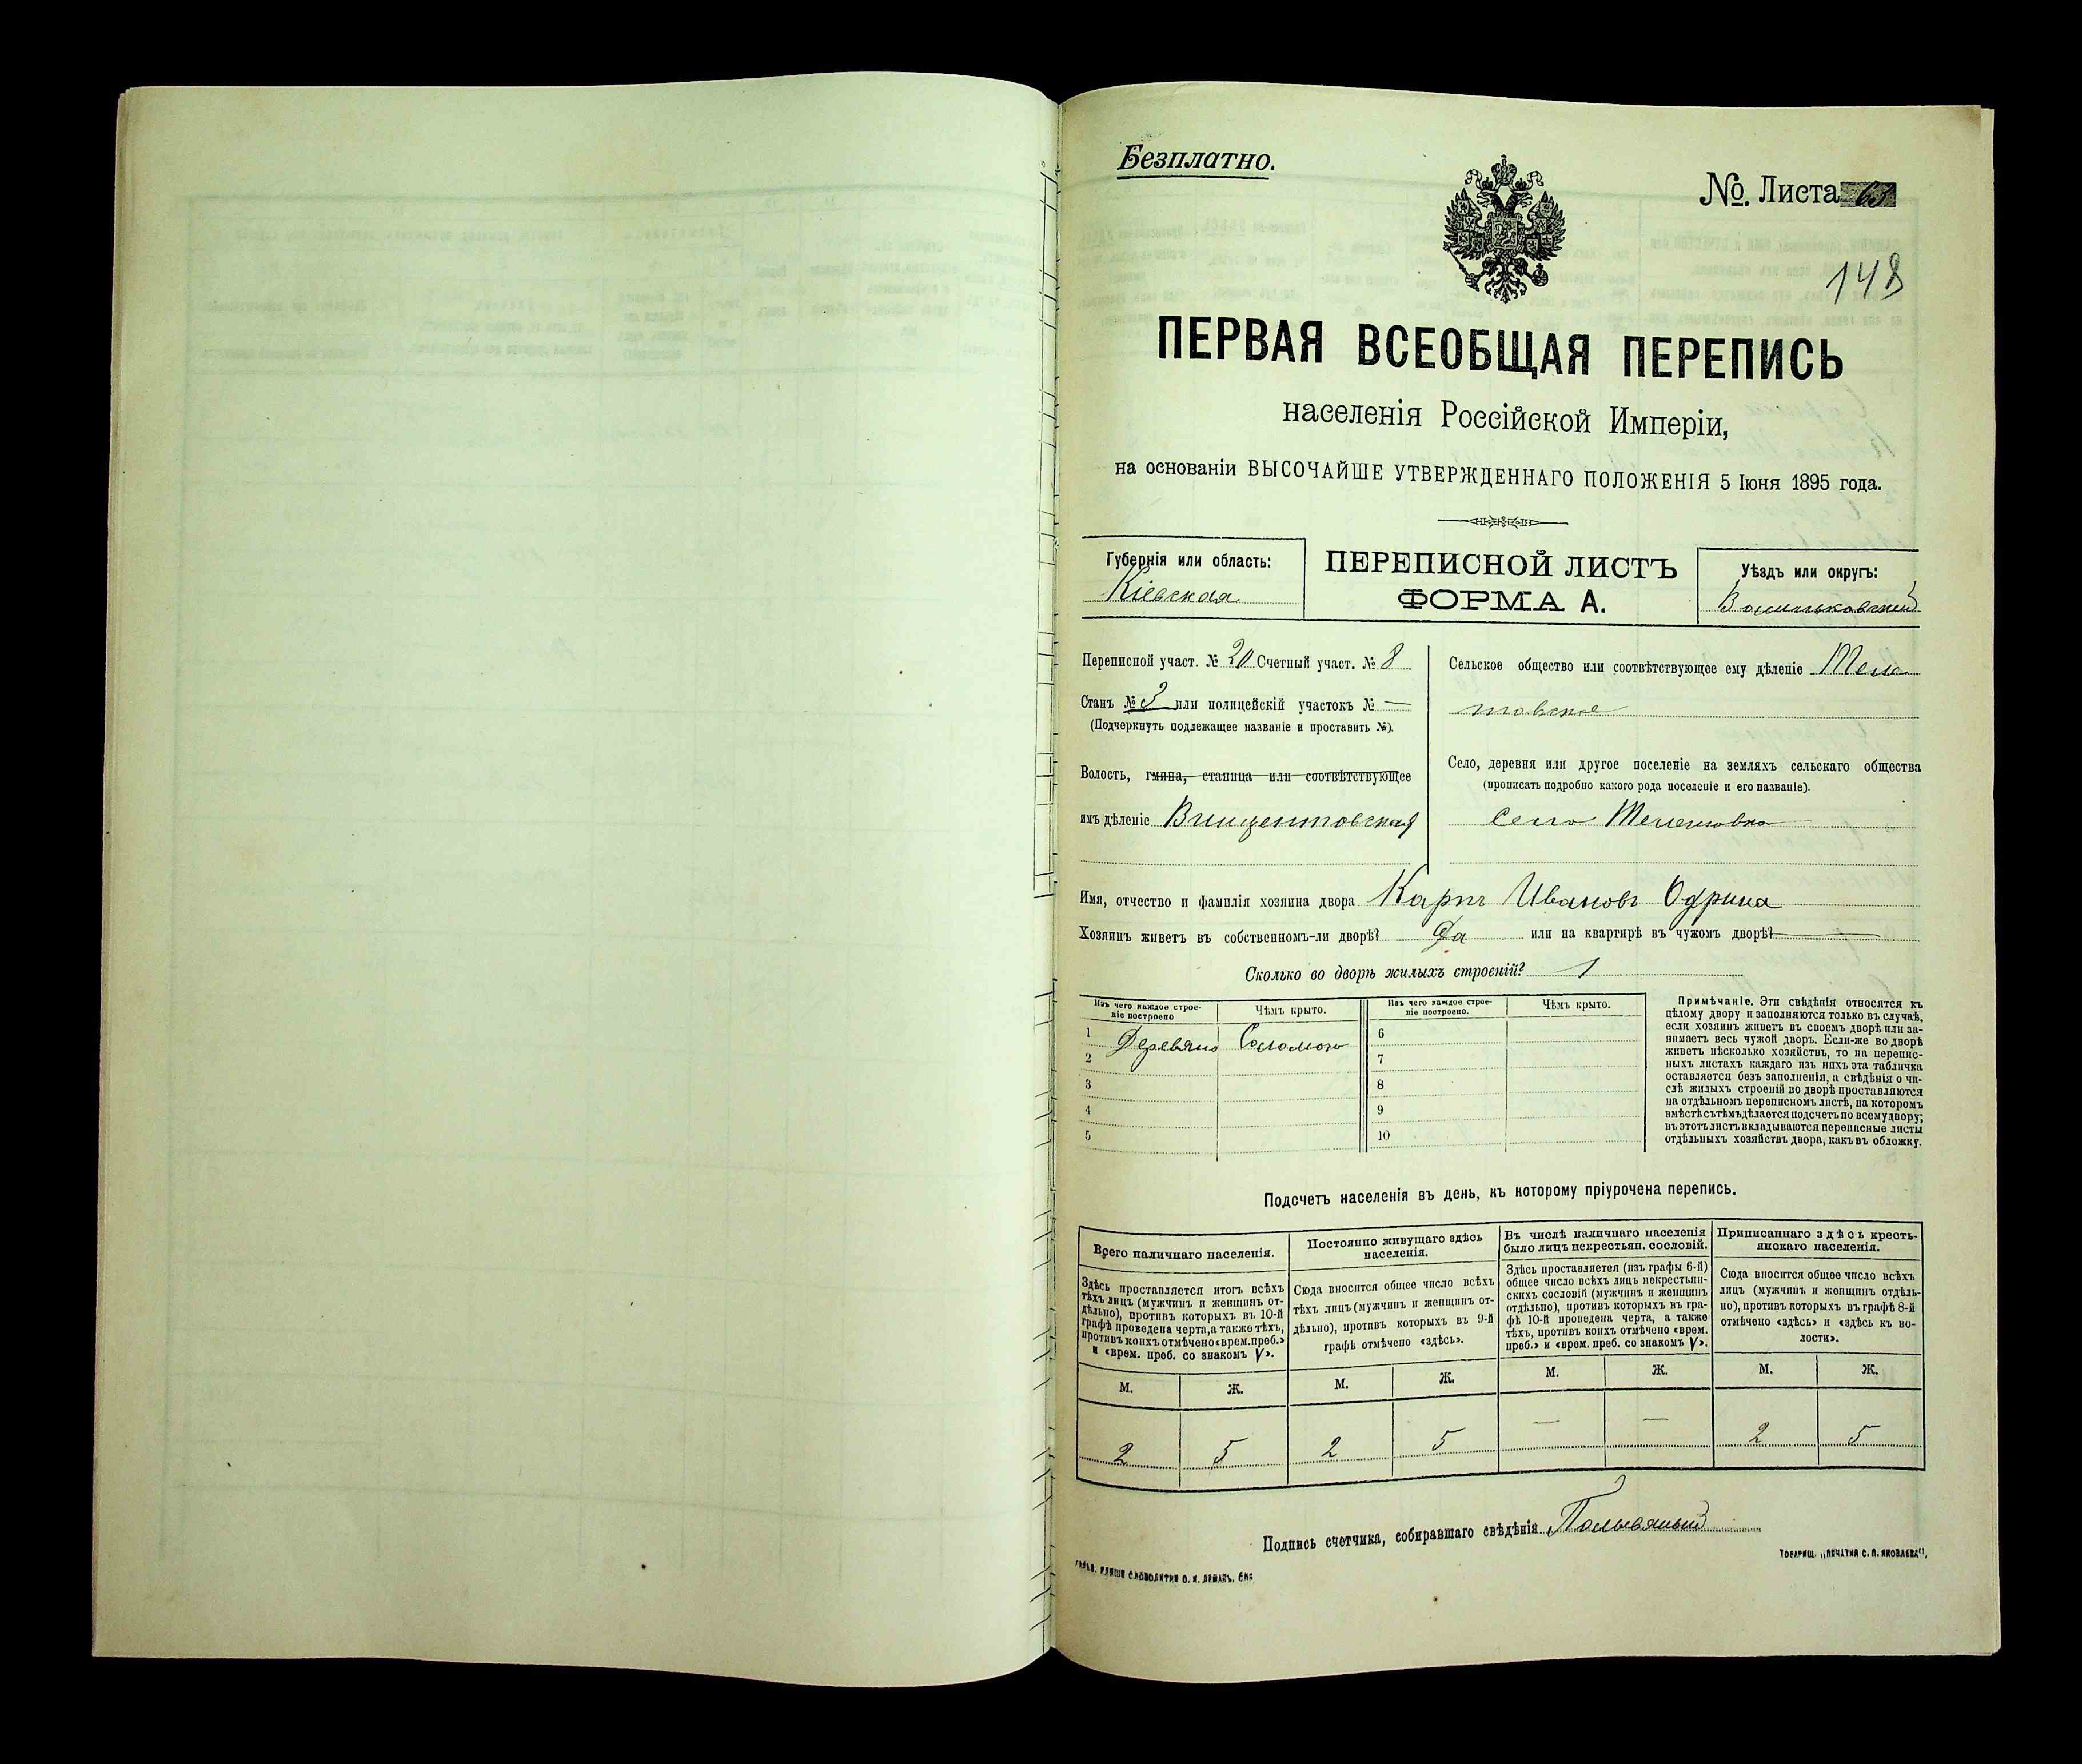 Безплатно.
№. Листа 63
148
ПЕРВАЯ ВСЕОБЩАЯ ПЕРЕПИСЬ
населенія Россійской Имперіи,
на основаніи ВЫСОЧАЙШЕ УТВЕРЖДЕННАГО ПОЛОЖЕНІЯ 5 Іюня 1895 года.
Губернія или область:
Кіевская
ПЕРЕПИСНОЙ ЛИСТЪ
ФОРМА А.
Уѣздъ или округъ:
Васильковский
Переписной участ. № 20 Счетный участ. № 8
Станъ № 3 или полицейскій участокъ № —
(Подчеркнуть подлежащее названіе и проставить №).
Волость, гмина, станица или соотвѣтствующее
имъ дѣленіе Винцентовская
Сельское общество или соотвѣтствующее ему дѣленіе
товское
Село, деревня или другое поселеніе на земляхъ сельскаго общества
(прописать подробно какого рода поселеніе и его названіе).
село
Имя, отчество и фамилія хозяина двора Карпъ Ивановъ Одрина
Хозяинъ живетъ въ собственномъ-ли дворѣ? Да или на квартирѣ въ чужомъ дворѣ? —
Сколько во дворѣ жилыхъ строеній? 1
Изъ чего каждое строе-
ніе построено
Чѣмъ крыто.
Изъ чего каждое строе-
ніе построено.
Чѣмъ крыто.
1 Деревяно Соломою
2
3
4
5
6
7
8
9
10
Примѣчаніе. Эти свѣдѣнія относятся къ
цѣлому двору и заполняются только въ случаѣ,
если хозяинъ живетъ въ своемъ дворѣ или за-
нимаетъ весь чужой дворъ. Если-же во дворѣ
живетъ нѣсколько хозяйствъ, то на перепис-
ныхъ листахъ каждаго изъ нихъ эта табличка
оставляется безъ заполненія, а свѣдѣнія о чи-
слѣ жилыхъ строеній во дворѣ проставляются
на отдѣльномъ переписномъ листѣ, на которомъ
вмѣстѣ съ тѣмъ дѣлается подсчетъ по всему двору;
въ этотъ листъ вкладываются переписные листы
отдѣльныхъ хозяйствъ двора, какъ въ обложку.
Подсчетъ населенія въ день, къ которому пріурочена перепись.
Всего наличнаго населенія.
Здѣсь проставляется итогъ всѣхъ
тѣхъ лицъ (мужчинъ и женщинъ от-
дѣльно), противъ которыхъ въ 10-й
графѣ проведена черта, а также тѣхъ,
противъ коихъ отмѣчено «врем. преб.»
и «врем. преб. со знакомъ V».
Постоянно живущаго здѣсь
населенія.
Сюда вносится общее число всѣхъ
тѣхъ лицъ (мужчинъ и женщинъ от-
дѣльно), противъ которыхъ въ 9-й
графѣ отмѣчено «здѣсь».
Въ числѣ наличнаго населенія
было лицъ некрестьян. сословій.
Здѣсь проставляется (изъ графы 6-й)
общее число всѣхъ лицъ некрестьян-
скихъ сословій (мужчинъ и женщинъ
отдѣльно), противъ которыхъ въ гра-
фѣ 10-й проведена черта, а также
тѣхъ, противъ коихъ отмѣчено «врем.
преб.» и «врем. преб. со знакомъ V».
Приписаннаго здѣсь кресть-
янскаго населенія.
Сюда вносится общее число всѣхъ
лицъ (мужчинъ и женщинъ отдѣль-
но), противъ которыхъ въ графѣ 8-й
отмѣчено «здѣсь» и «здѣсь къ во-
лости».
М. Ж. М. Ж. М. Ж. М. Ж.
2 5 2 5 — — 2 5
Подпись счетчика, собиравшаго свѣдѣнія
ТОВАРИЩ. „ПЕЧАТНЯ С. П. ЯКОВЛЕВА",